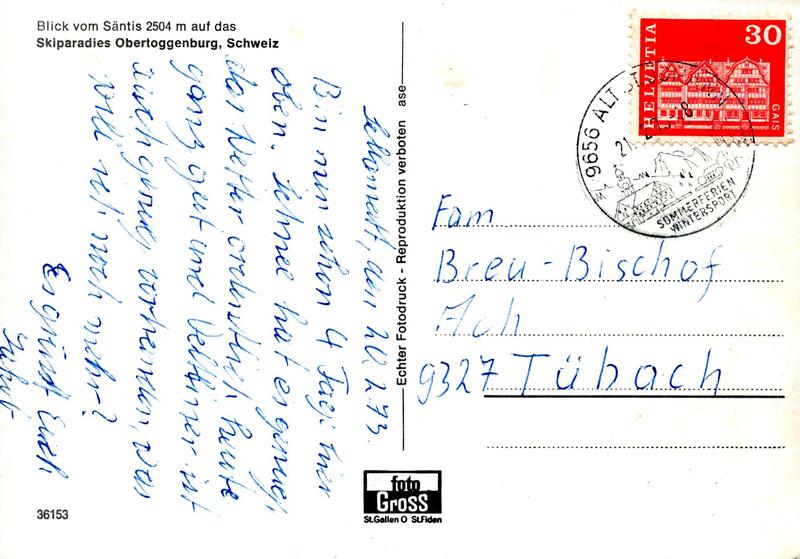 Blick vom Säntis 2504 m auf das
Skiparadies Obertoggenburg, Schweiz
den 20.2.73.
Bin nun schon 4 Tage hier
oben. Schnee hat es genug,
das Wetter ordentlich, heute
ganz gut und Veltliner ist
auch genug vorhanden, was
will ich noch mehr?
Es grüsst Euch
Jakob
36153
Echter Fotodruck - Reproduktion verboten ase
foto
Gross
St.Gallen O St.Fiden
HELVETIA
30
GAIS
9656 ALT ST
21. 2. 73
SOMMERFERIEN
WINTERSPORT
Fam
Breu-Bischof
Ach
9327 Tübach